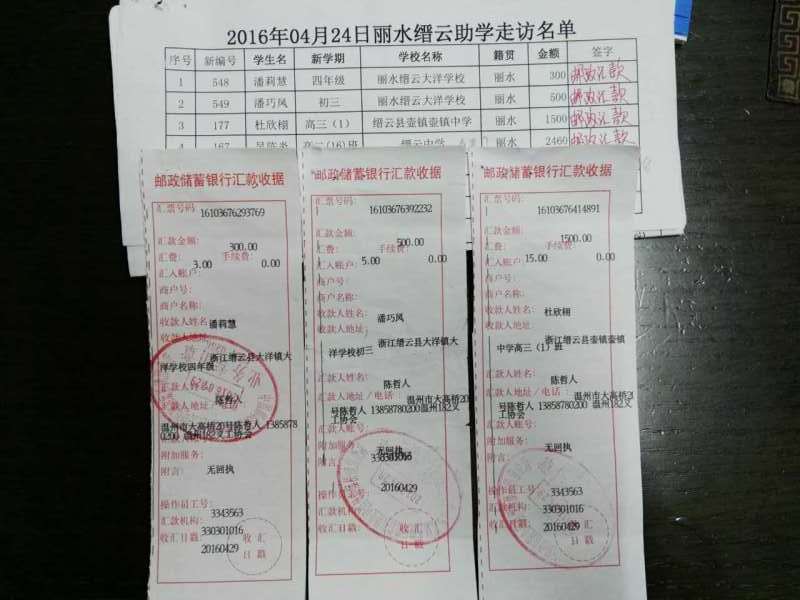 2016年04月24日丽水缙云助学走访名单
序号 新编号 学生名 新学期 学校名称 籍贯 金额 签字
1 548 潘莉慧 四年级 丽水缙云大洋学校 丽水 300 邮政汇款
2 549 潘巧风 初三 丽水缙云大洋学校 丽水 500 邮政汇款
3 177 杜欣栩 高三（1） 缙云县壶镇壶镇中学 丽水 1500 邮政汇款
4 167 高二(16)班 缙云中学 丽水 2460 邮政汇款
邮政储蓄银行汇款收据
汇票号码: 16103676293769
汇款金额: 300.00
汇费: 3.00 手续费: 0.00
汇入账户:
商户号:
商户名称:
收款人姓名: 潘莉慧
收款人地址:
浙江缙云县大洋镇大
洋学校四年级
汇款人姓名: 陈哲人
汇款人地址/电话:
温州市大高桥20号陈哲人 13858780200 温州182义工协会
附加服务:
附言: 无回执
操作员工号: 3343563
汇款机构: 330301016
收汇日戳: 20160429
收汇
日戳
邮政储蓄银行汇款收据
汇票号码: 16103676392232
汇款金额: 500.00
汇费: 5.00 手续费: 0.00
汇入账户:
商户号:
商户名称:
收款人姓名: 潘巧风
收款人地址:
浙江缙云县大洋镇大
洋学校初三
汇款人姓名: 陈哲人
汇款人地址/电话:
温州市大高桥20
号陈哲人 13858780200 温州182义
工协会
汇款人账号:
附加服务: 无回执
附言:
操作员工号: 3343563
汇款机构: 330301016
收汇日戳: 20160429
收汇
日戳
邮政储蓄银行汇款收据
汇票号码: 16103676414891
汇款金额: 1500.00
汇费: 15.00 手续费: 0.00
汇入账户:
商户号:
商户名称:
收款人姓名: 杜欣栩
收款人地址:
浙江缙云县壶镇壶镇
中学高三（1）班
汇款人姓名: 陈哲人
汇款人地址/电话:
温州市大高桥20
号陈哲人 13858780200 温州182义
工协会
汇款人账号:
附加服务: 无回执
附言:
操作员工号: 3343563
汇款机构: 330301016
收汇日戳: 20160429
收汇
日戳